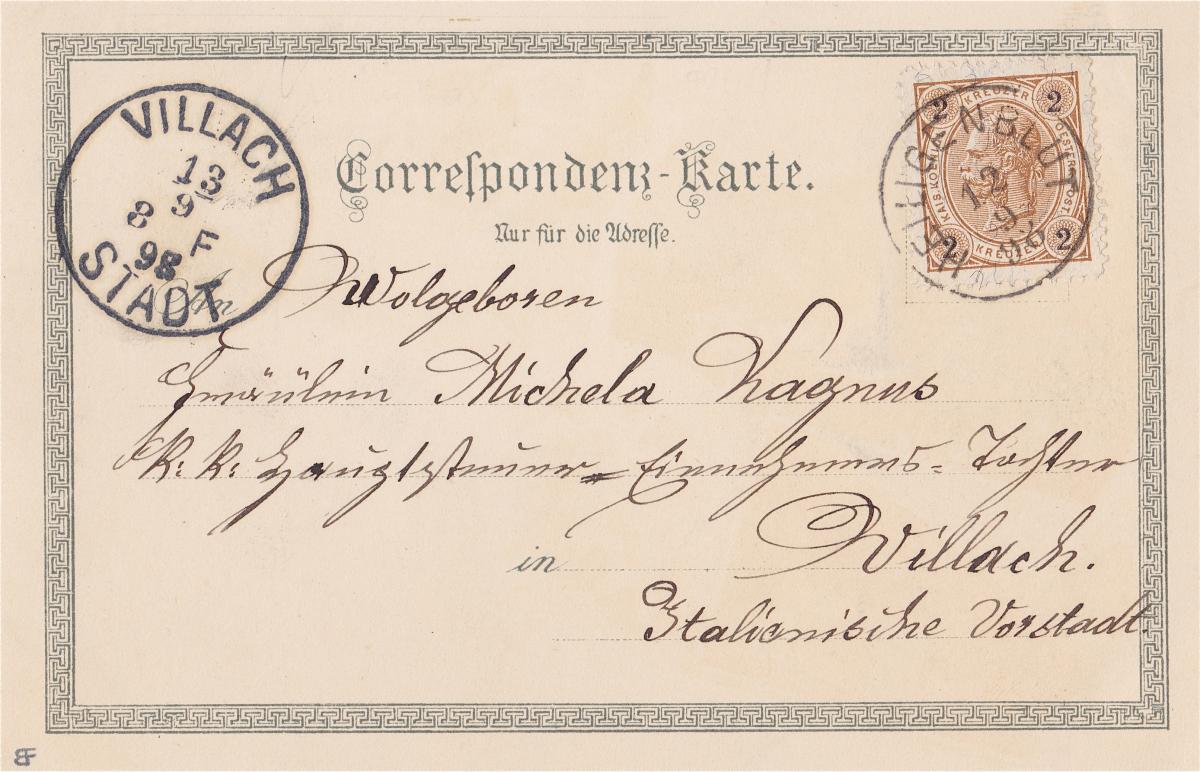 VILLACH
13
9
8 F
98
STADT
HEILIGENBLUT
12
9
98
2 KREUZER 2
KAIS. KÖNIGL. OESTERR. POST
2 KREUZER 2
Correspondenz-Karte.
Nur für die Adresse.
An
Wolgeboren
Fräulein Michela Kagnus
k. k. Hauptsteuer-Einnehmers-Tochter
in Villach.
Italienische Vorstadt.
BF